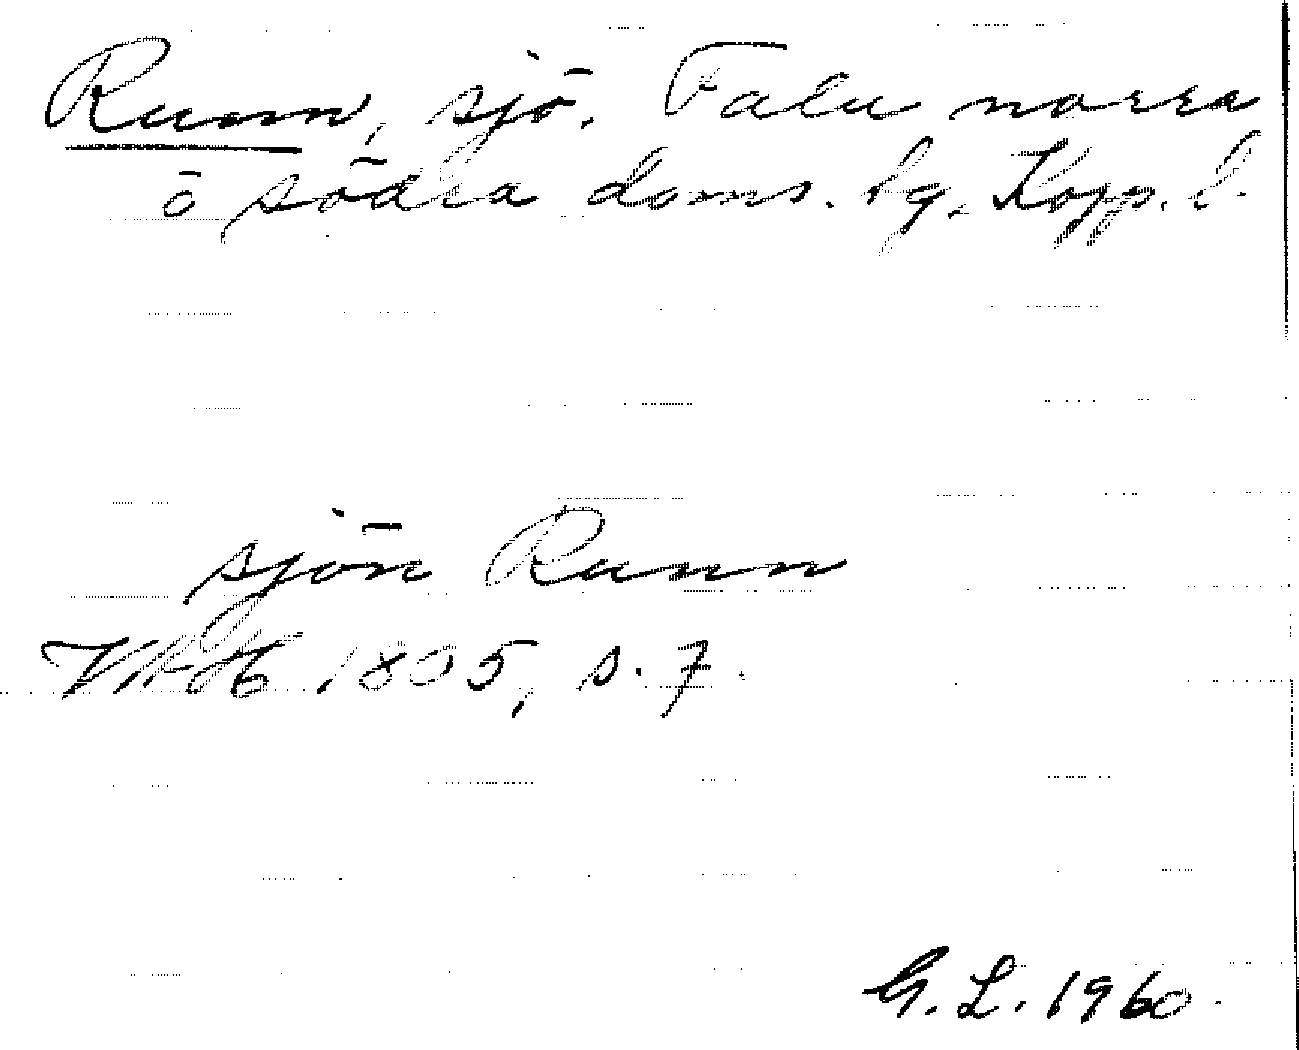 Runn, sjö. Falu norra
o södra doms. hg. Kopp. l.
sjön Runn
1805, s. 7.
G. L. 1960.